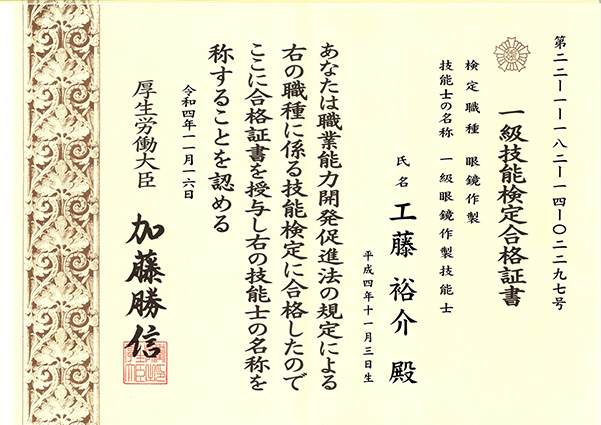 第二二ー一ー一八二ー一四ー〇二二九七号
一級技能検定合格証書
検定職種 眼鏡作製
技能士の名称 一級眼鏡作製技能士
氏名 工藤裕介 殿
平成四年十一月三日生
あなたは職業能力開発促進法の規定による
右の職種に係る技能検定に合格したので
ここに合格証書を授与し右の技能士の名称を
称することを認める
令和四年一一月一六日
厚生労働大臣 加藤勝信